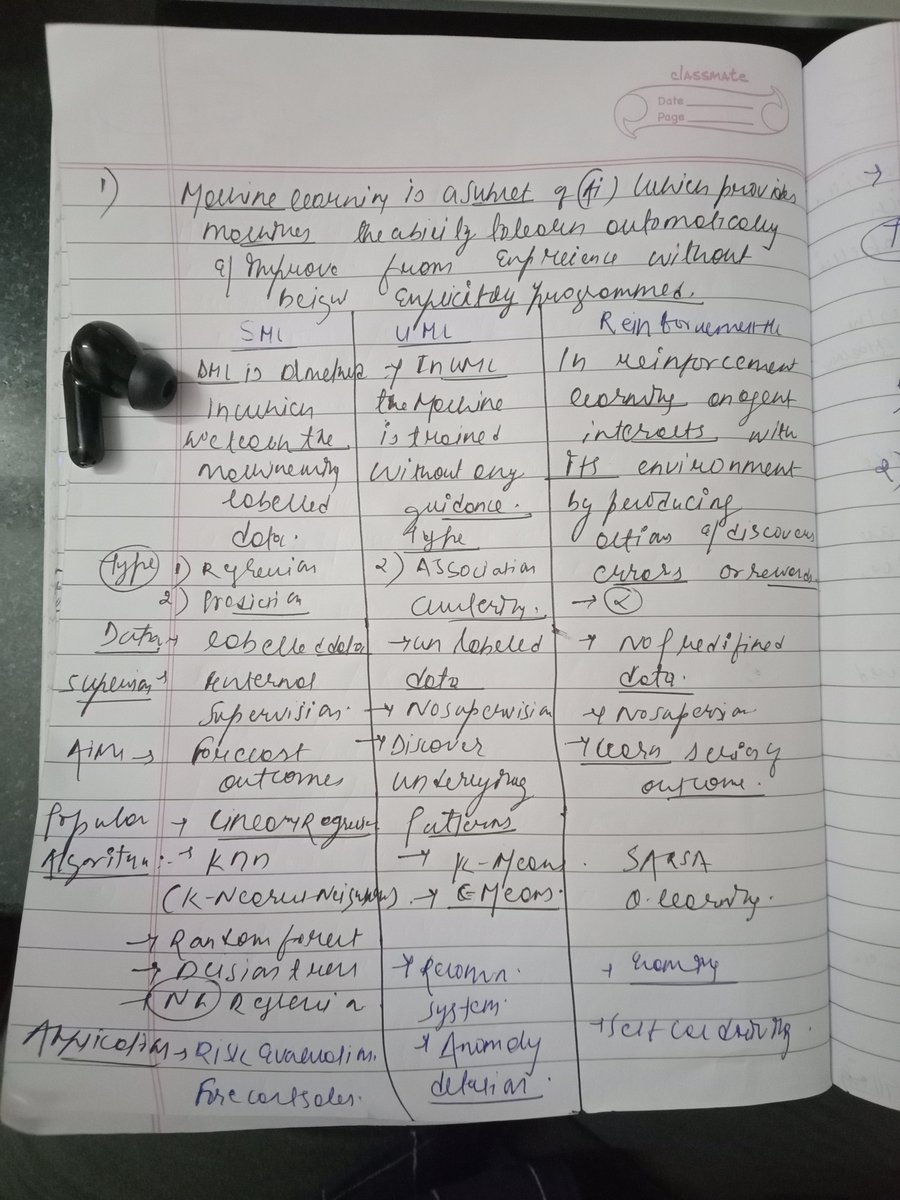 classmate
Date
Page
1)
Machine learning is a subset of (Ai) which provides
machines the ability to learn automatically
& improve from Enpreience without
beign Enplicitdy programmed.
SML UML Reinforvement
SML is a method → In UML In reinforcement
In which the Machine learning an agent
we teach the is trained interacts with
machine without any its environment
labelled guidance. by producing
data. Type actions & discovers
Type 1) Regression 2) Association errors or rewards.
2) Prediction Clustering. →
Data → labelled data → un labeled → No predifined
Supervision → External data data.
Supervision. → No supervision → No supervision
Aim → forecast → Discover → learn series of
outcomes underlying outcome.
Popular → Linear Regression Patterns
Algorithm :- → KNN → K-Means. SARSA
(K-Nearest-Neighbors) → C-Means. Q-learning.
→ Random forest
→ Decision trees → Recomn. → Gaming
→ Regression system.
Application → Risk Evaluation. → Anomaly → Self car driving.
Forecast sales. detection.